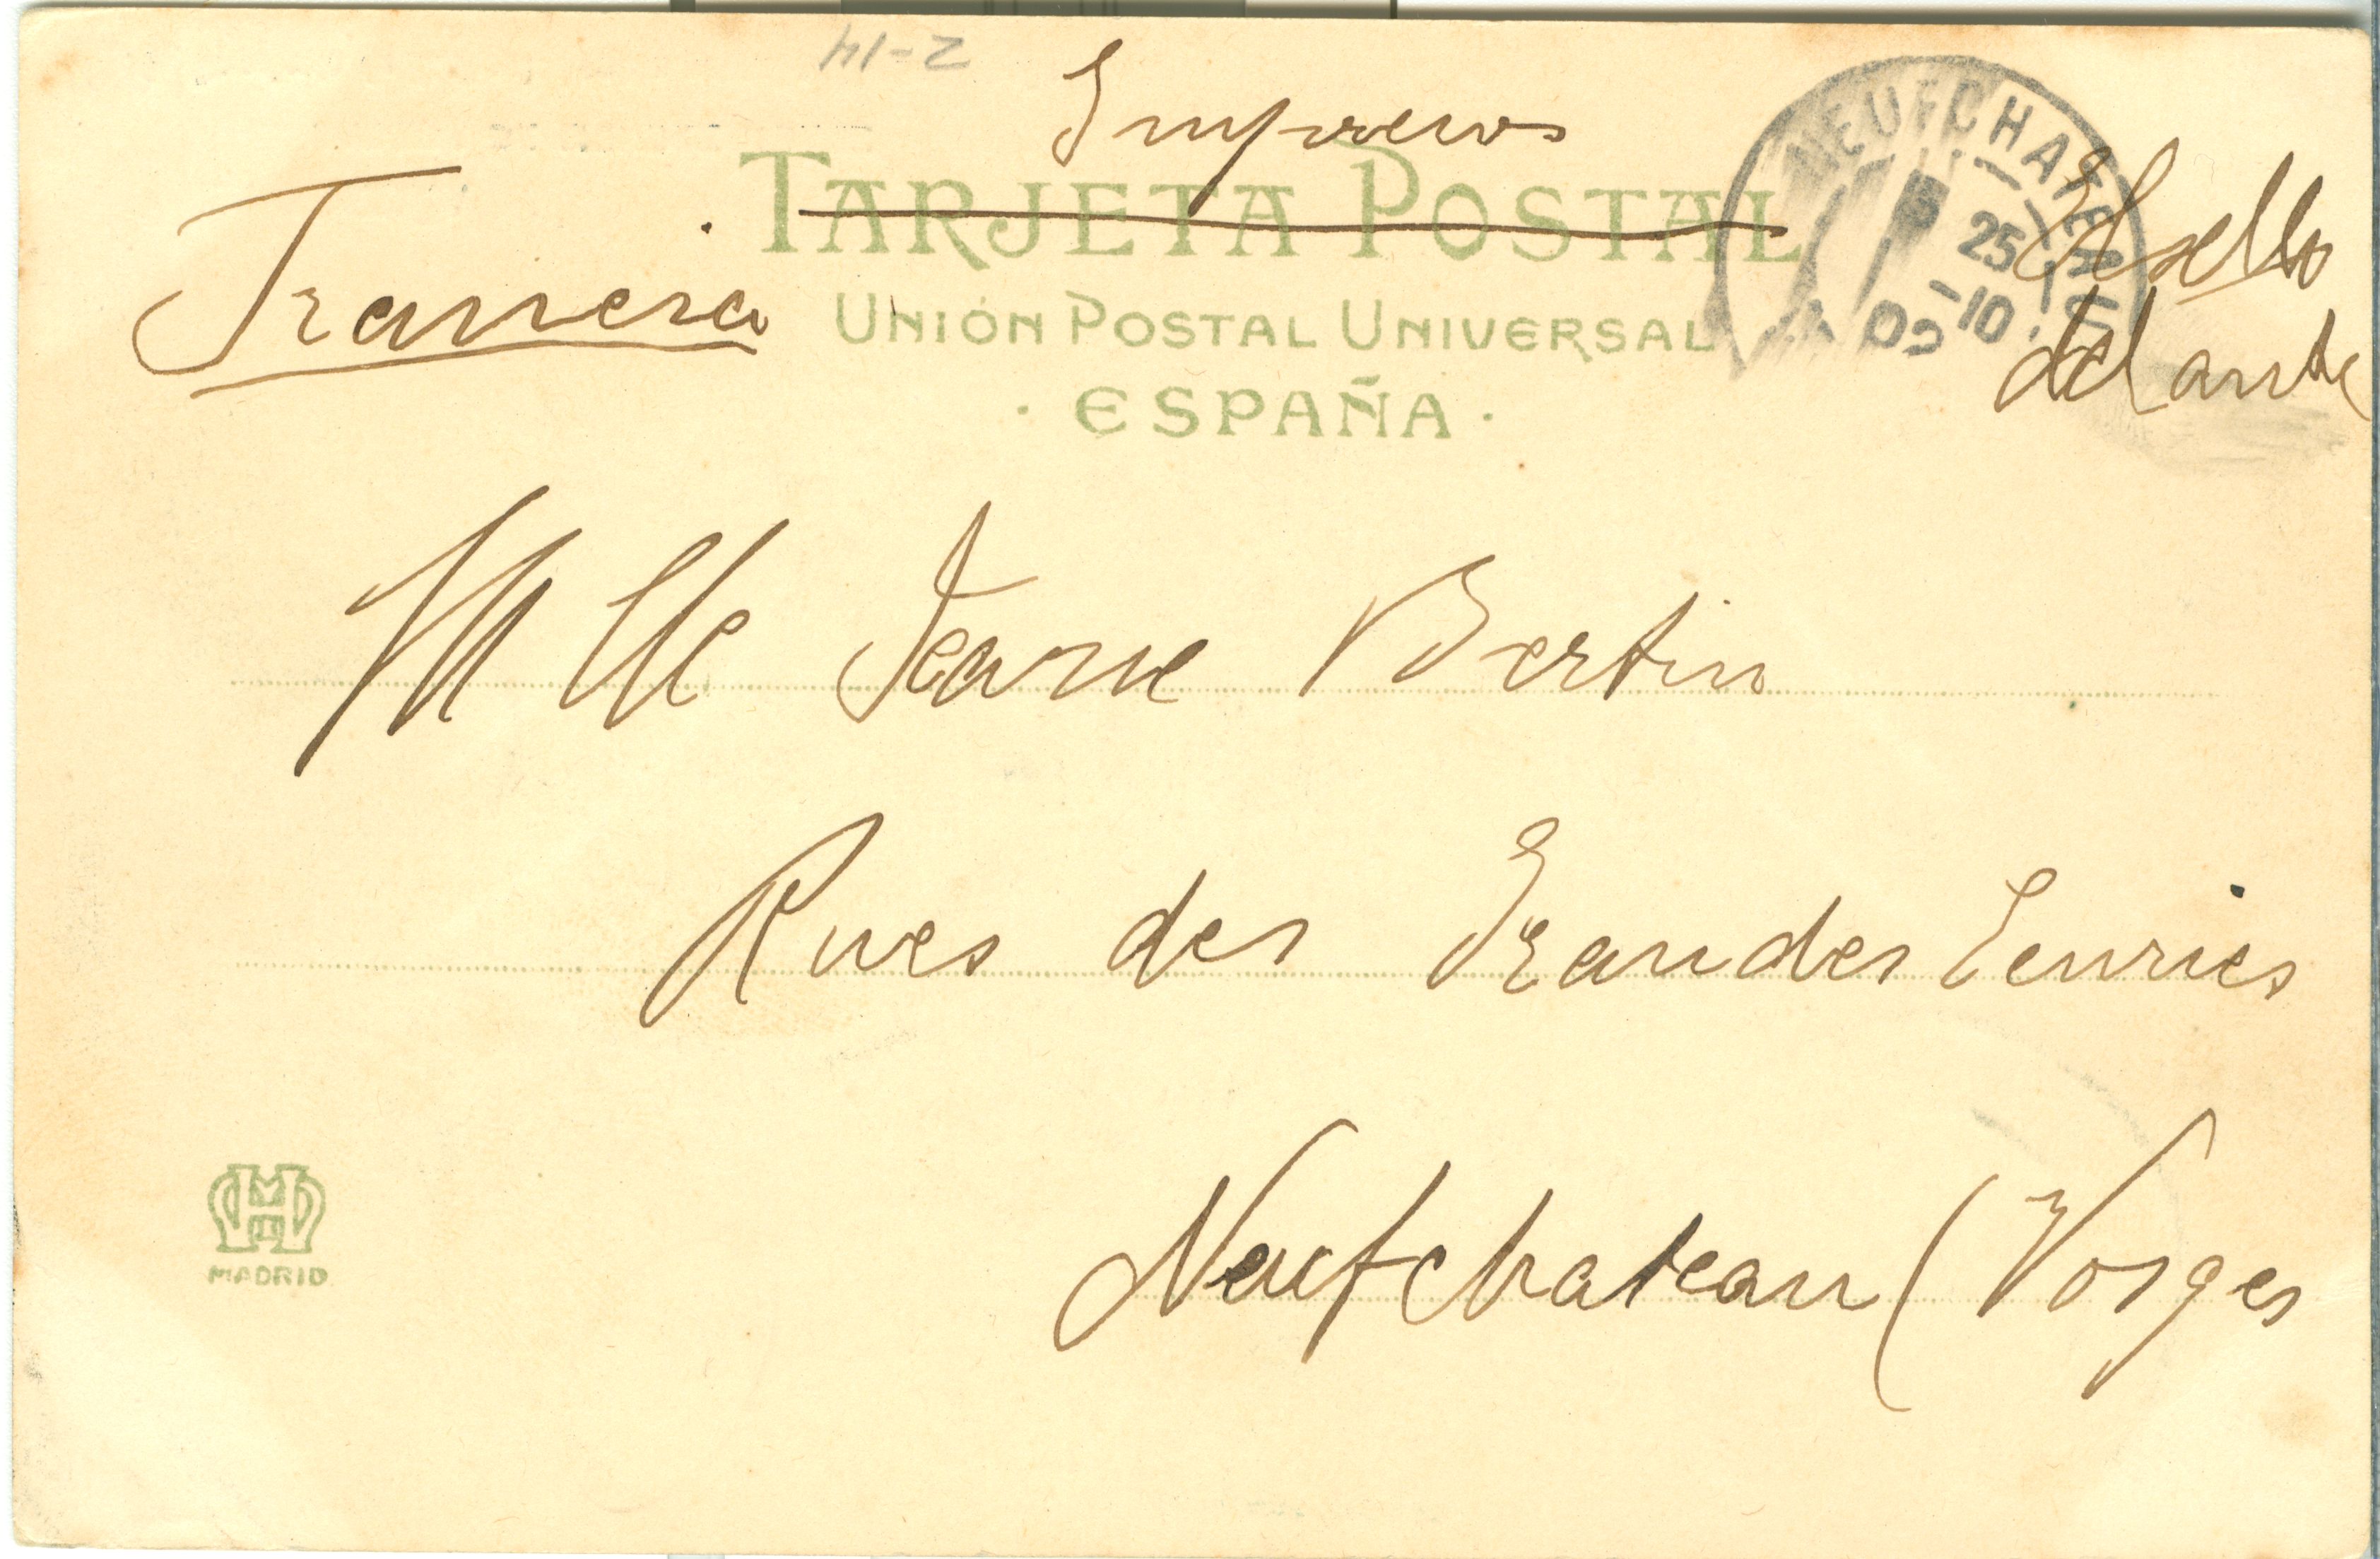 2-14
Impresos
TARJETA POSTAL
Francia
UNIÓN POSTAL UNIVERSAL
· ESPAÑA ·
NEUFCHATEAU
25
-10
05
El sello
delante
Mlle Jeanne Bertin
Rues des Grandes Ecuries
Neufchateau (Vosges
MADRID